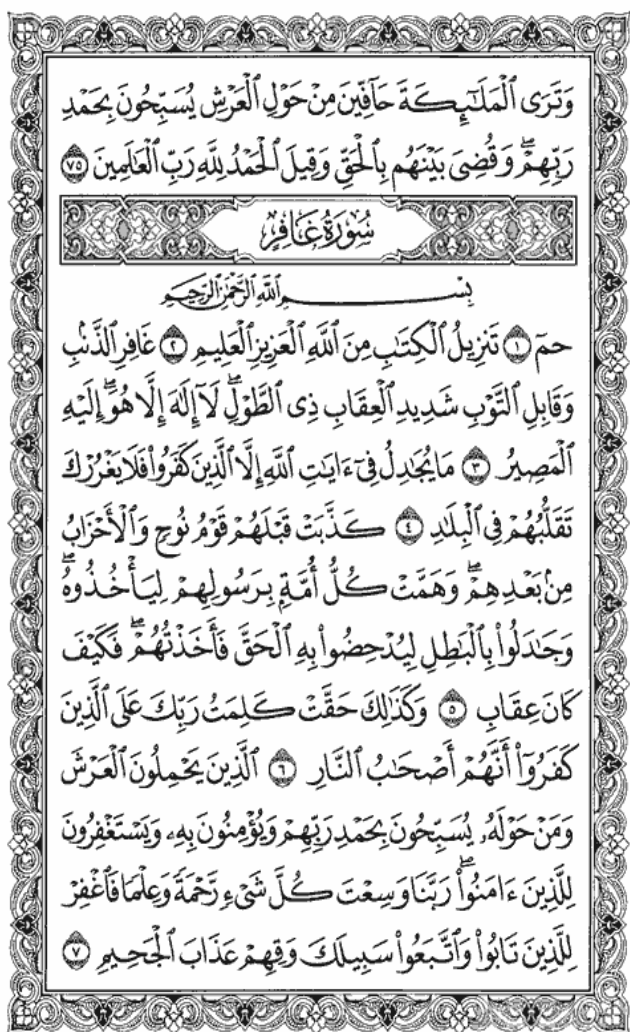 وَتَرَى ٱلْمَلَٰٓئِكَةَ حَآفِّينَ مِنْ حَوْلِ ٱلْعَرْشِ يُسَبِّحُونَ بِحَمْدِ
رَبِّهِمْۖ وَقُضِىَ بَيْنَهُم بِٱلْحَقِّ وَقِيلَ ٱلْحَمْدُ لِلَّهِ رَبِّ ٱلْعَٰلَمِينَ ٧٥
سُورَةُ غَافِرٍ
بِسْمِ ٱللَّهِ ٱلرَّحْمَٰنِ ٱلرَّحِيمِ
حمٓ ١ تَنزِيلُ ٱلْكِتَٰبِ مِنَ ٱللَّهِ ٱلْعَزِيزِ ٱلْعَلِيمِ ٢ غَافِرِ ٱلذَّنۢبِ
وَقَابِلِ ٱلتَّوْبِ شَدِيدِ ٱلْعِقَابِ ذِى ٱلطَّوْلِۖ لَآ إِلَٰهَ إِلَّا هُوَۖ إِلَيْهِ
ٱلْمَصِيرُ ٣ مَا يُجَٰدِلُ فِىٓ ءَايَٰتِ ٱللَّهِ إِلَّا ٱلَّذِينَ كَفَرُوا۟ فَلَا يَغْرُرْكَ
تَقَلُّبُهُمْ فِى ٱلْبِلَٰدِ ٤ كَذَّبَتْ قَبْلَهُمْ قَوْمُ نُوحٍ وَٱلْأَحْزَابُ
مِنۢ بَعْدِهِمْۖ وَهَمَّتْ كُلُّ أُمَّةٍۭ بِرَسُولِهِمْ لِيَأْخُذُوهُۖ
وَجَٰدَلُوا۟ بِٱلْبَٰطِلِ لِيُدْحِضُوا۟ بِهِ ٱلْحَقَّ فَأَخَذْتُهُمْۖ فَكَيْفَ
كَانَ عِقَابِ ٥ وَكَذَٰلِكَ حَقَّتْ كَلِمَتُ رَبِّكَ عَلَى ٱلَّذِينَ
كَفَرُوٓا۟ أَنَّهُمْ أَصْحَٰبُ ٱلنَّارِ ٦ ٱلَّذِينَ يَحْمِلُونَ ٱلْعَرْشَ
وَمَنْ حَوْلَهُۥ يُسَبِّحُونَ بِحَمْدِ رَبِّهِمْ وَيُؤْمِنُونَ بِهِۦ وَيَسْتَغْفِرُونَ
لِلَّذِينَ ءَامَنُوا۟ۖ رَبَّنَا وَسِعْتَ كُلَّ شَىْءٍ رَّحْمَةً وَعِلْمًا فَٱغْفِرْ
لِلَّذِينَ تَابُوا۟ وَٱتَّبَعُوا۟ سَبِيلَكَ وَقِهِمْ عَذَابَ ٱلْجَحِيمِ ٧